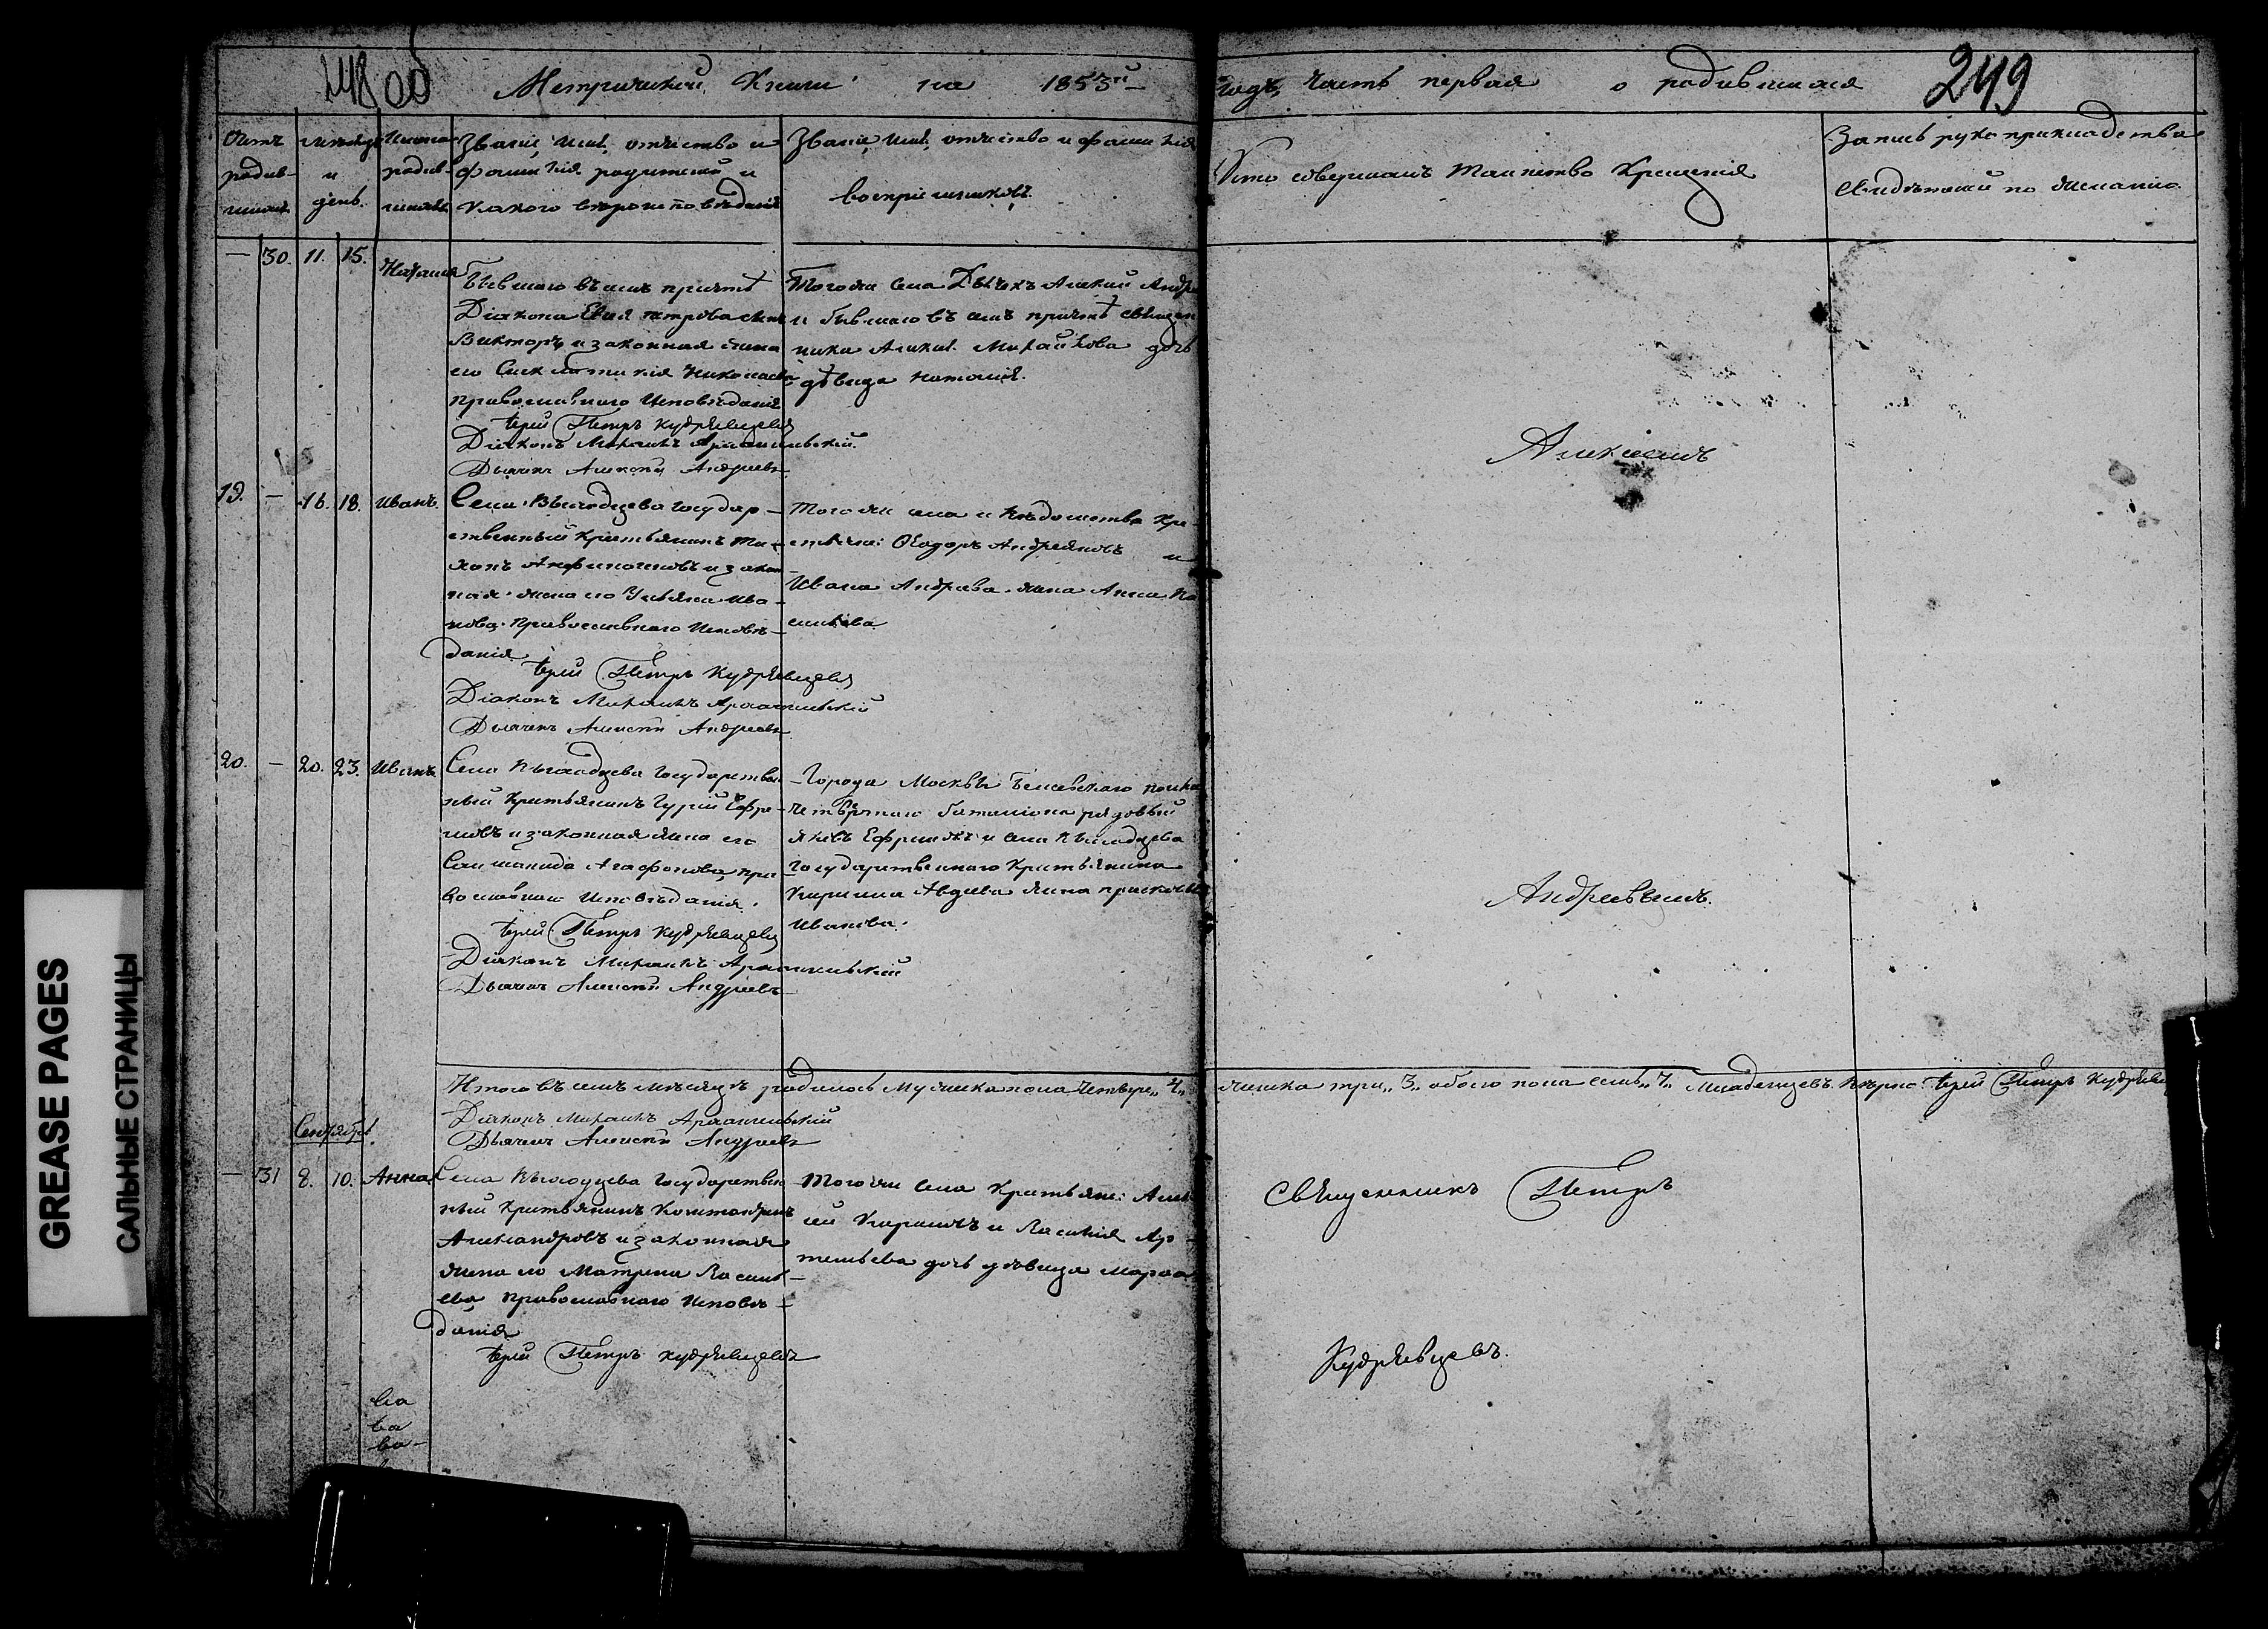 249
Метрической Книги на 1853й годъ, часть первая о родившихся
Счетъ родив-шихся
мѣсяцъ и день.
Имена родив-шихся
Званіе, имя, отчество и
фамилія родителей и
какого вѣроисповѣданія
Званіе, имя, отчество и фамилія
воспріемниковъ.
Кто совершалъ таинство Крещенія
Запись рукоприкладства
свидѣтелей по желанію
— 30. 11. 15. Наталія
Бывшаго въ семъ причтѣ
Діакона Евѳ Петрова сынъ
Викторъ и законная жена
его Николаева
православнаго Исповѣданія
Іерей Петръ Кудрявцевъ
Діаконъ Михаилъ Архангельскій
Дьячекъ Алексѣй Андреевъ
Тогоже села Дьячекъ Алексѣй Андре
и бывшаго въ семъ причтѣ священ
ника Алексѣя Михайлова дочь
дѣвица Наталія.
Алексѣемъ
19. — 16. 18. Иванъ.
Села Выгодцева государ-
ственный крестьянинъ Ти-
хонъ и закон
ная жена его Ульяна Ива-
нова православнаго Исповѣ-
данія
Іерей Петръ Кудрявцевъ
Діаконъ Михаилъ Архангельскій
Дьячекъ Алексѣй Андреевъ
Тогоже села и вѣдомства кре-
стьяне: Ѳеодоръ Андреяновъ и
Ивана Андреева жена Анна Ва
сильева
20. — 20. 23. Иванъ
Села Выгодцева Государствен
ный крестьянинъ Гурій Ефре-
мовъ и законная жена его
Соломонида Агафонова, пра
вославнаго Исповѣданія.
Іерей Петръ Кудрявцевъ
Діаконъ Михаилъ Архангельскій
Дьячекъ Алексѣй Андреевъ
Города Москвы полка
четвертаго баталіона рядовый
Яковъ Ефремовъ и села Выгодцева
Государственнаго крестьянина
Кирилла Авдеева жена Прасковья
Иванова.
Андреевымъ.
Итого въ семъ мѣсяцѣ родилось мужеска пола четыре „4„ женска три „3„ обоего пола семь „7„ младенцевъ. Вѣрно: Іерей Петръ Кудрявц
Діаконъ Михаилъ Архангельскій
Дьячекъ Алексѣй Андреевъ
Сентябрь.
— 31 8. 10. Анна
Села Выгодцева Государствен
ный крестьянинъ Константинъ
Александровъ и законная
жена его Матрена Василь-
ева православнаго Исповѣ-
данія
Іерей Петръ Кудрявцевъ
Тогоже села крестьяне: Алек
сѣй Кириловъ и Василія Ар-
темьева дочь дѣвица Марѳа
Священникъ Петръ
Кудрявцевъ.
GREASE PAGES
САЛЬНЫЕ СТРАНИЦЫ